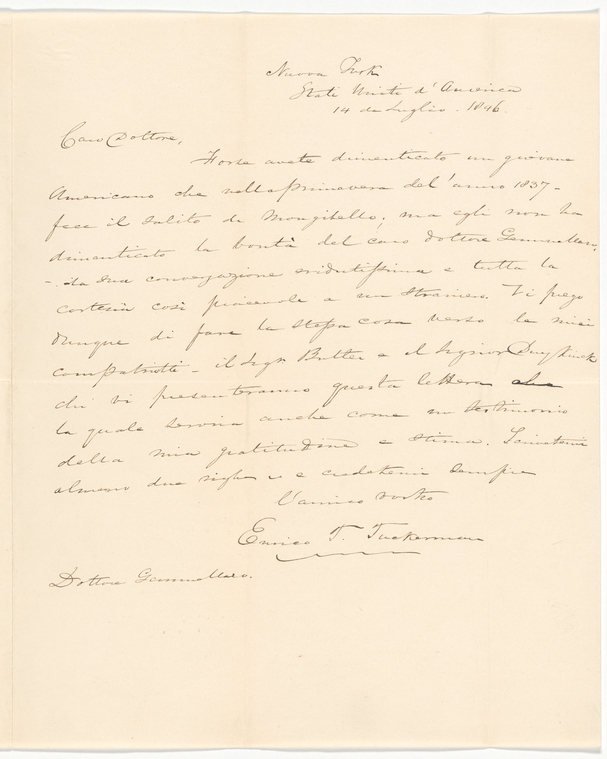 Nuova York
Stati Uniti d'America
14 de Luglio - 1846.
Caro Dottore,
Forse avete dimenticato un giovane
Americano che nella primavera del' anno 1837 -
fece il salito di Mongibello; ma egli non ha
dimenticato la bontà del caro dottore Gemmellaro,
- la sua convegazione erudutissima e tutta la
cortesia così piacevole a un straniero. Vi prego
dunque di fare la stessa cosa verso le miei
compatriotti - il Sigr Butler e il Signor Duyckinck
chi vi presenteranno questa lettera
la quale servira anche come un testimonio
della mia gratitudine e stima.
almeno due righe e credetemi sempre
l'amico vostro
Enrico T. Tuckerman
Dottore Gemmellaro.